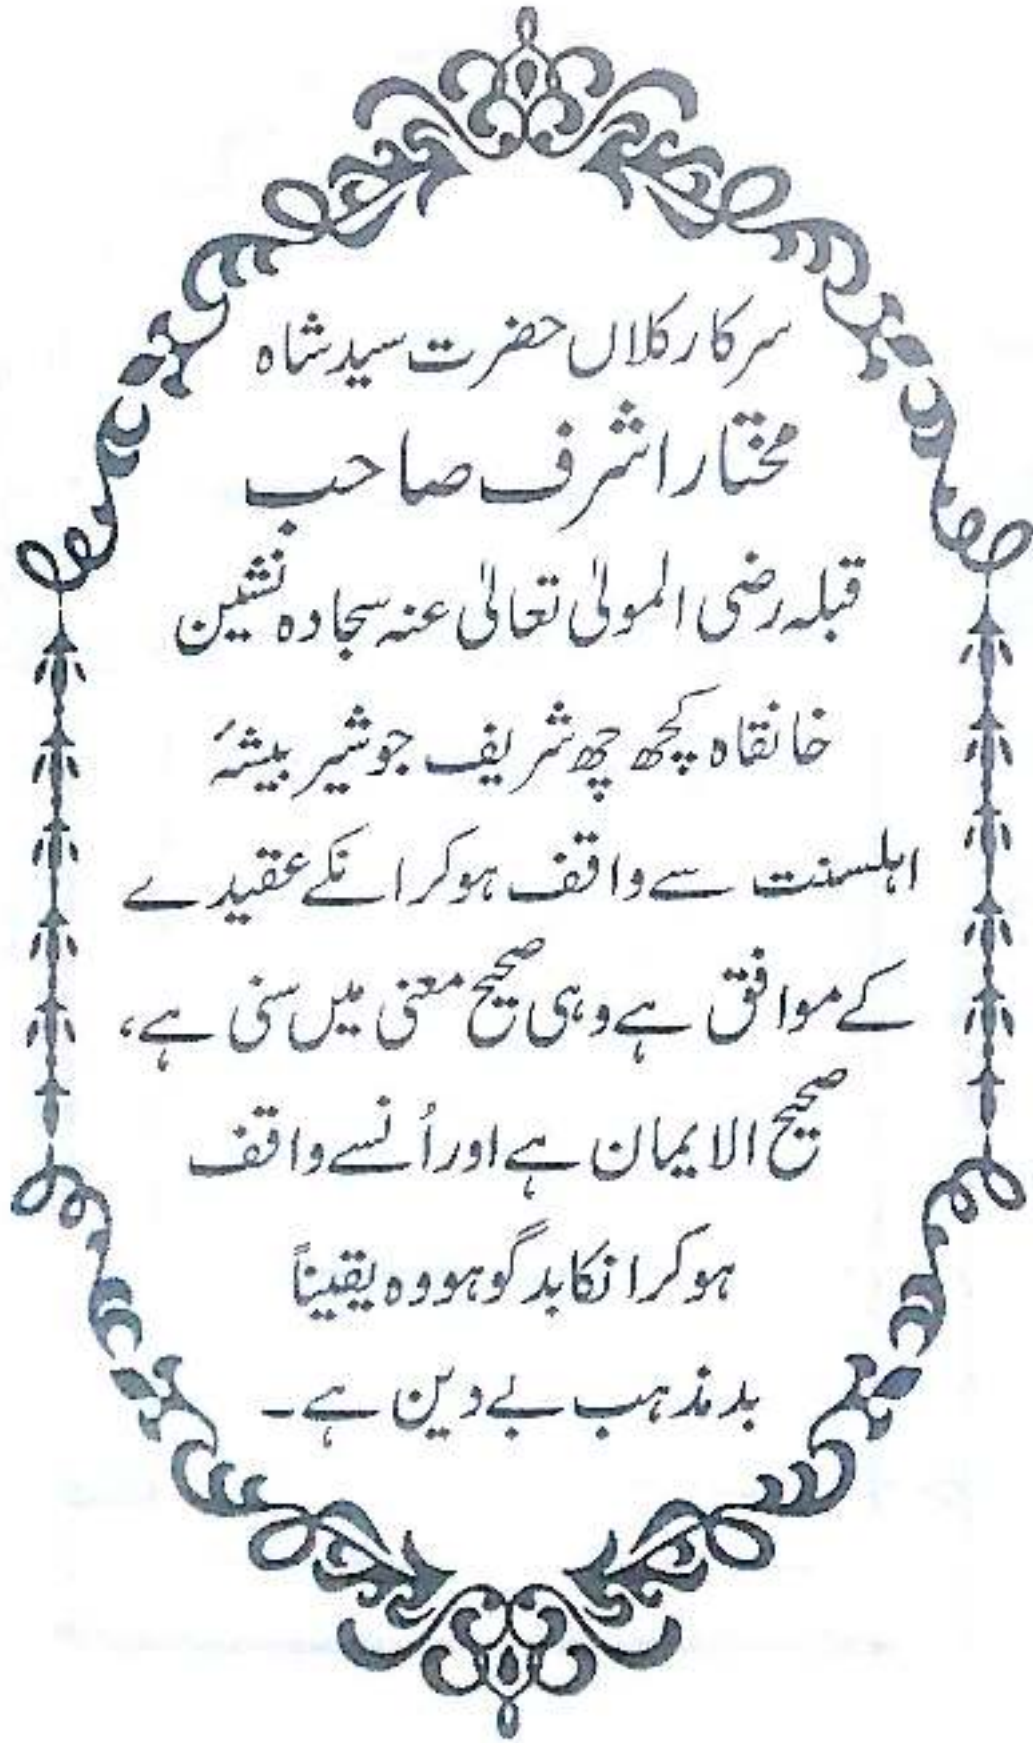 سرکار کلاں حضرت سید شاہ
مختار اشرف صاحب
قبلہ رضی المولیٰ تعالیٰ عنہ سجادہ نشین
خانقاہ کچھ چھ شریف جو شیر بیشۂ
اہلسنت سے واقف ہو کر انکے عقیدے
کے موافق ہے وہی صحیح معنی میں سنی ہے،
صحیح الایمان ہے اور اُنسے واقف
ہو کر انکا بد گو ہو وہ یقیناً
بد مذہب بے دین ہے۔